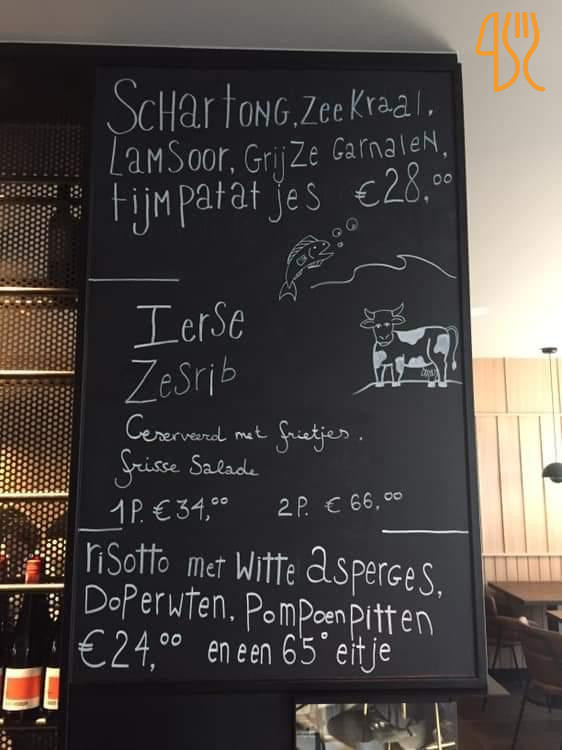 Schartong, zeekraal,
Lamsoor, Grijze Garnalen,
tijmpatatjes €28,00
Ierse
Zesrib
Geserveerd met frietjes.
frisse Salade
1P. €34,00 2P. €66,00
risotto met witte asperges,
Doperwten, Pompoenpitten
€24,00 en een 65° eitje